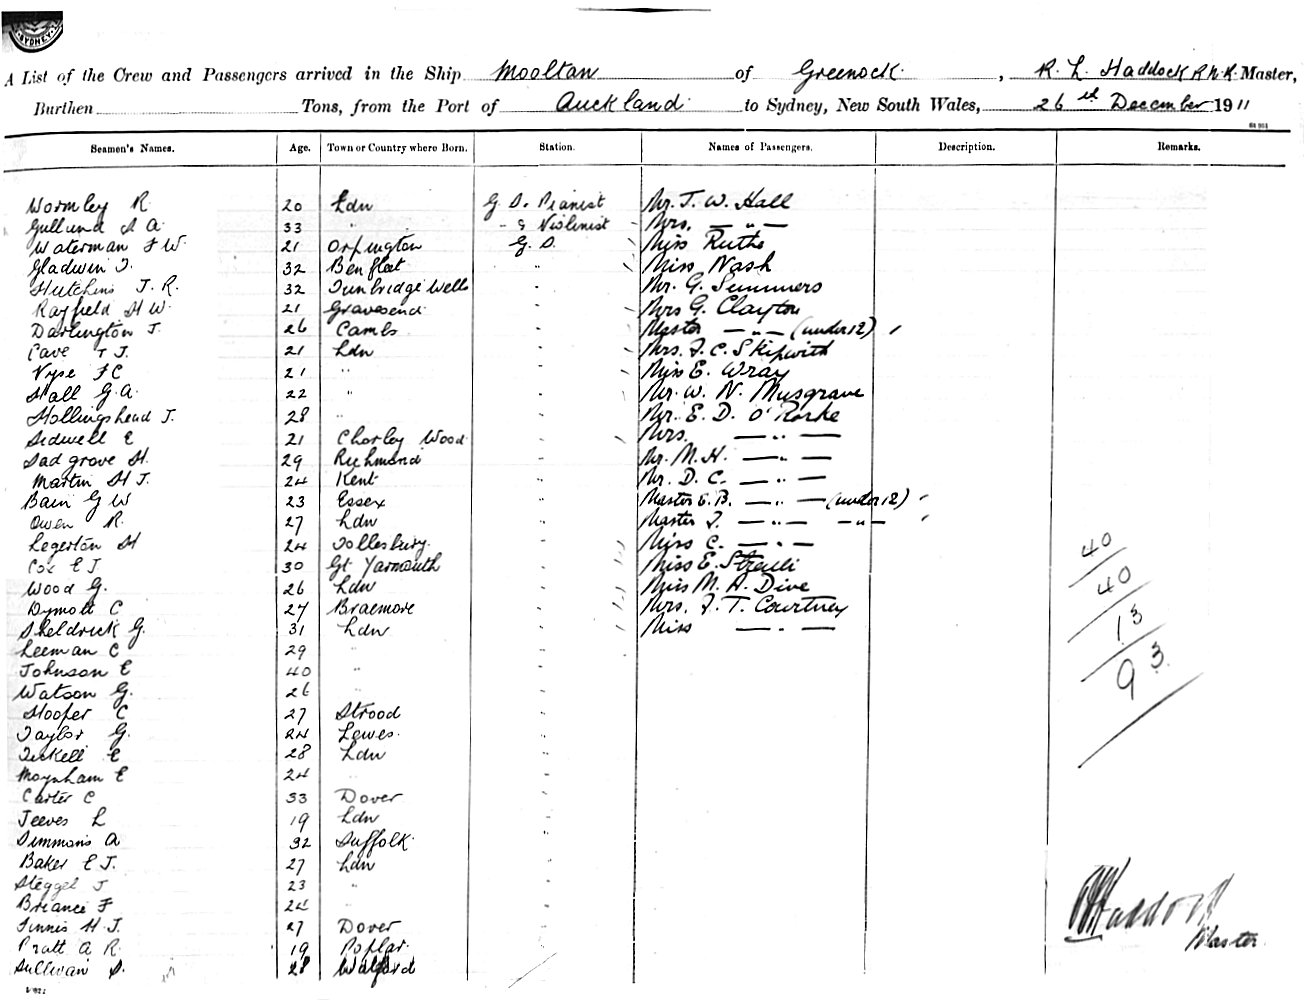 SYDNEY
A List of the Crew and Passengers arrived in the Ship Mooltan of Greenock, R. L. Haddock R.N.R. Master,
Burthen Tons, from the Port of Auckland to Sydney, New South Wales, 26th December 1911
Seamen's Names. Age. Town or Country where Born. Station. Names of Passengers. Description. Remarks.
Wormley R. 20 Ldn G. S. Pianist Mr. J. W. Hall
Gullund A A. 33 " - & Violinist Mrs. — " —
Waterman F W. 21 Orpington G. S. Miss Ruths
Gladwin J. 32 Benfleet " Miss Nash
Hutchins J. R. 32 Tunbridge Wells " Mr. G. Summers
Rayfield H W. 21 Gravesend " Mrs G. Clayton
Darlington J. 26 Cambs " Master — " — (under 12)
Cave T J. 21 Ldn " Mrs. J. C. Skipwith
Vyse F C 21 " " Miss E. Wray
Hall G. A. 22 " " Mr. W. N. Musgrave
Hollingshead J. 28 " " Mr. E. D. O'Rorke
Sidwell E 21 Chorley Wood " Mrs. — " —
Sadgrove H. 29 Richmond " Mr. M. H. — " —
Martin H J. 24 Kent " Mr. D. C. — " —
Bain G W 23 Essex " Master E. B. — " — (under 12)
Owen R. 27 Ldn " Master J. — " — — " —
Legerton H 24 Tollesbury " Miss C. — " —
Cox E J 30 Gt Yarmouth " Miss E.
Wood G. 26 Ldn " Miss M. A. Dive
Dymott C 27 Braemore " Mrs. J. T. Courtney
Sheldrick G. 31 Ldn " Miss — " —
Leeman C 29 " "
Johnson E 40 " "
Watson G. 26 " "
Hooper C 27 Strood "
Taylor G. 24 Lewes "
Tickell E 28 Ldn "
Moynham E 24 " "
Carter C 33 Dover "
Jeeves L 19 Ldn "
Simmons A 32 Suffolk "
Baker E J. 27 Ldn "
Steggel J 23 " "
Briance F 24 " "
Finnis H J. 27 Dover "
Pratt A R. 19 Poplar "
Sullivan S. 28
40
40
13
93
Haddock
Master